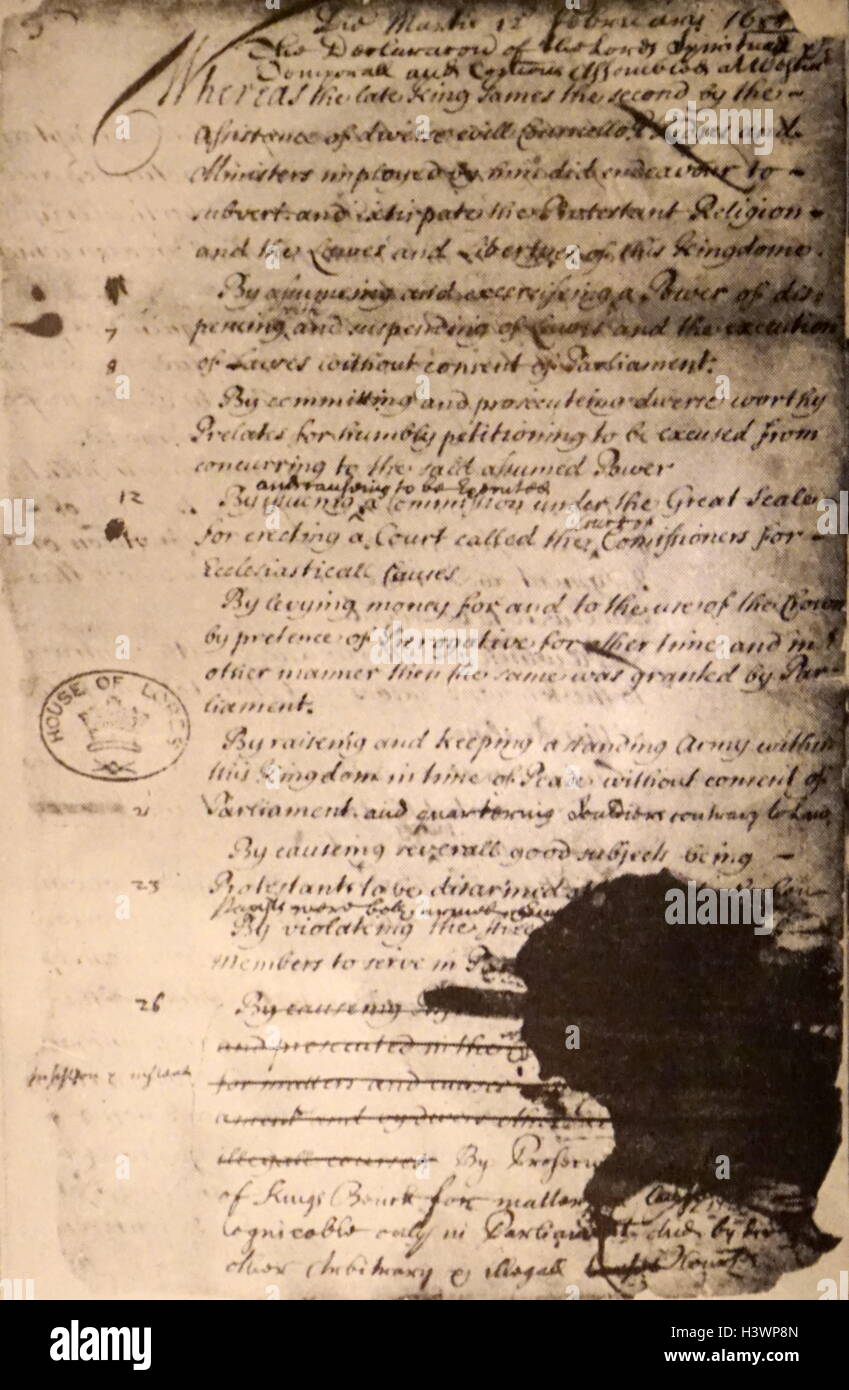 Die Martis 12 February 168
The Declaration of the Lords Spirituall &
Temporall and Com̄ons Assembled at Westmr
Whereas the late King James the second by the
Assistance of diverse evill Councello Judges and
Ministers imployed by him did endeavour to
subvert and extirpate the Protestant Religion
and the Lawes and Libertyes of this Kingdome.
By assumeing and exerciseing a Power of dis
7
pencing and suspending of Lawes and the execution
8
of Lawes without consent of Parliament.
By committing and prosecuteing diverse worthy
Prelates for humbly petitioning to be excused from
concurring to the said assumed Power
and causeing to be Executed
12
By issueing a Com̄ission under the Great Seale
for erecting a Court called the Court of Com̄issioners for
Ecclesiasticall Causes
By levying money for and to the use of the Crown
by pretence of Prerogative for other time and in
other manner then the same was granted by Par
liament.
HOUSE OF LORDS
By raiseing and keeping a standing Army within
this Kingdom in time of Peace without consent of
21
Parliament and quartering Souldiers contrary to Law
By causeing severall good subjects being
23
Protestants to be disarmed
Papists were both
By violateing the
members to serve in
26
By causeing
and prosecuted in the
for matters and causes
ament and by divers other
illegall courses By
of Kings Bench for matters
cognicable only in Parliament and by
other Arbitrary & illegall Courses
alamy
Image ID: H3WP8N
www.alamy.com